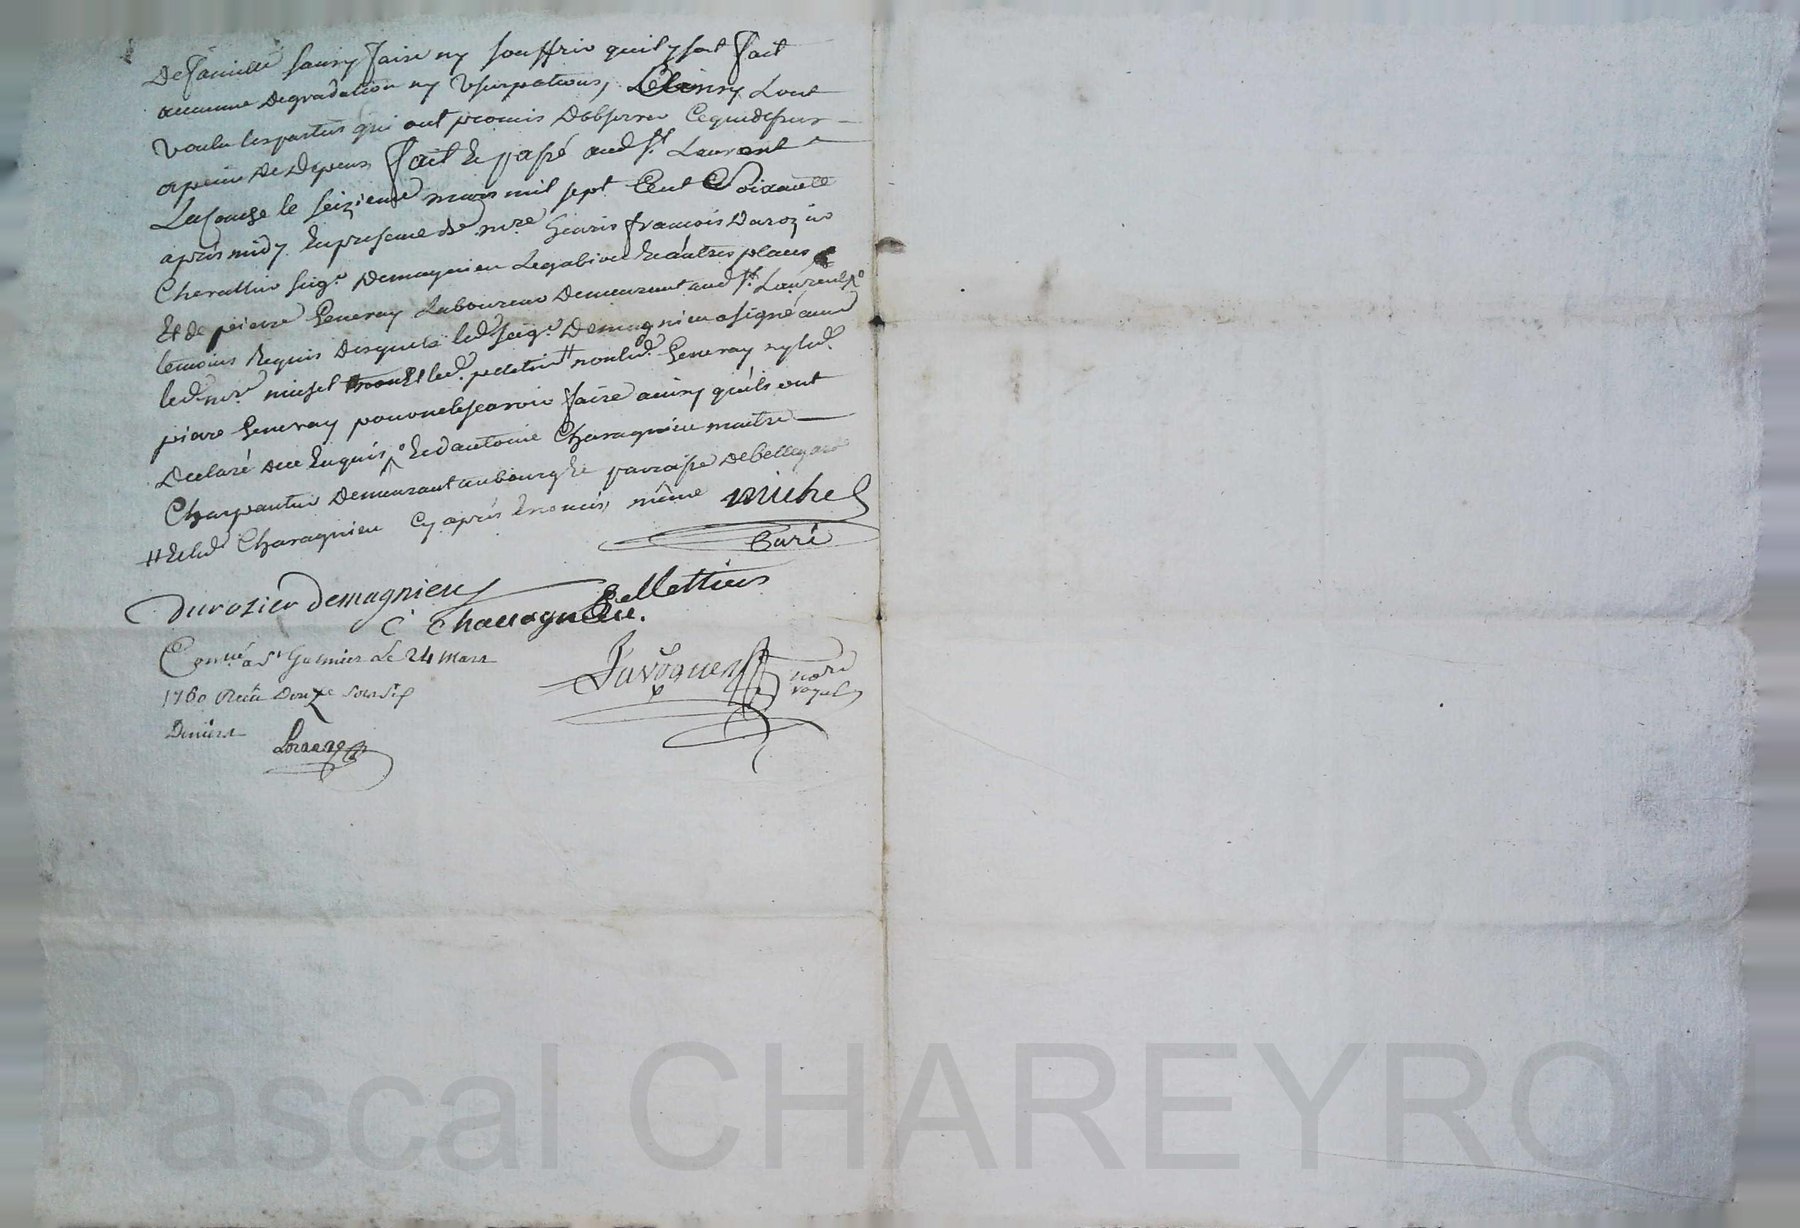 De famille sans y faire ny souffrir quil y soit fait
aucunne degradation ny Usurpations, Et Ainsy Lont
voulu les parties qui ont promis Dobserver Ce que dessus
a peine de Depens fait Et passé aud St. Laurent
La Conche le seizieme mars mil sept Cent Soixante
apres midy En presence de mre françois Durozier
Chevallier seigr. Demagnieu Legabion Et autres places
Et de pierre Generay Laboureur Demeurant aud St. Laurent
temoins Requis Desquels led. seigr. Demagnieu a signé avec
led. mre michel Et led. pelletier # non led. Generay ny led.
piere Generay pour ne le sçavoir faire ainsy quils ont
Declaré de ce Enquis Et d'antoine Charagnieu maitre
Charpentier Demeurant au bourg Et parroisse De bellegarde
# Et led. Charagnieu Cy apres Enoncés, même michel
Curé
Durozier Demagnieu Pellettier
C Charagnieu.
Conllé a St Galmier Le 24 mars
1760 Recu Douze sols six
Deniers
Javogues no.re
royal